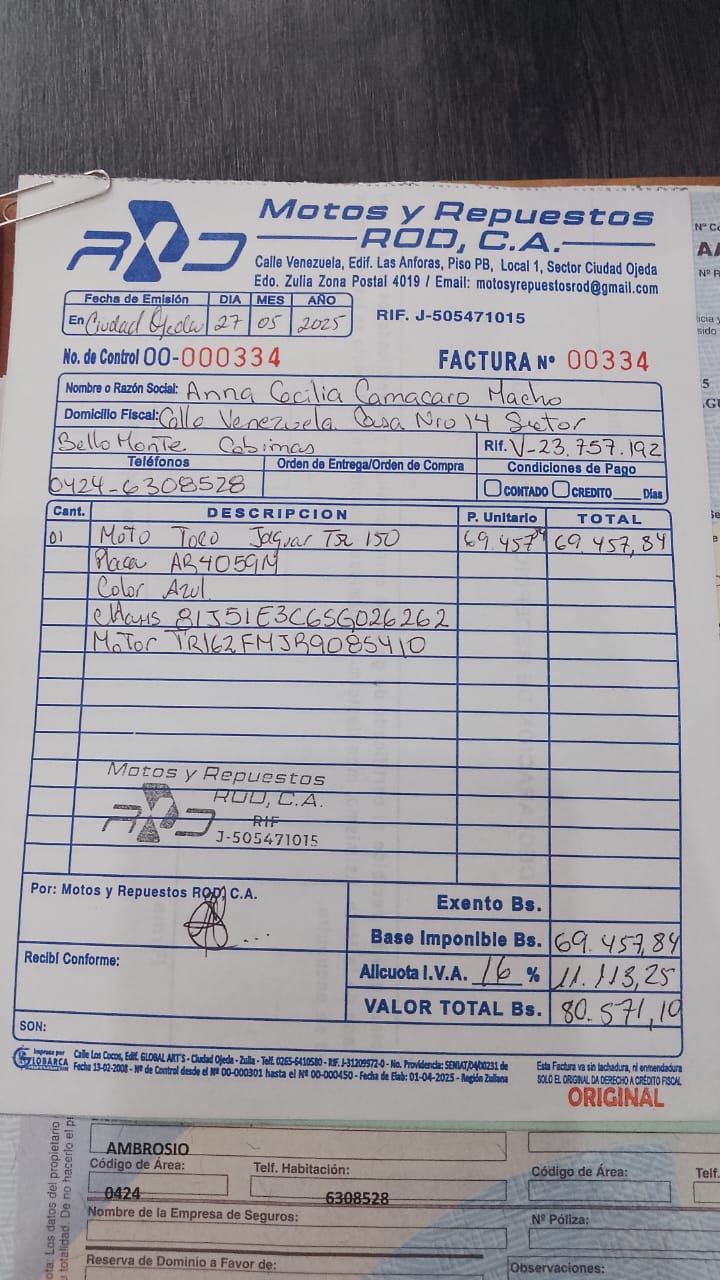 Motos y Repuestos
ROD, C.A.
Calle Venezuela, Edif. Las Anforas, Piso PB, Local 1, Sector Ciudad Ojeda
Edo. Zulia Zona Postal 4019 / Email: motosyrepuestosrod@gmail.com
Fecha de Emisión DIA MES AÑO
En Ciudad Ojeda 27 05 2025
RIF. J-505471015
No. de Control 00-000334 FACTURA Nº 00334
Nombre o Razón Social: Anna Cecilia Camacaro Macho
Domicilio Fiscal: Calle Venezuela Casa Nro 14 Sector
Bello Monte Cabimas Rif. V-23.757.192
Teléfonos Orden de Entrega/Orden de Compra Condiciones de Pago
0424-6308528 CONTADO CREDITO ____ Días
Cant. DESCRIPCION P. Unitario TOTAL
01 Moto Toro Jaguar TSR 150 69.457 69.457,84
Placa AR4O59M
Color Azul.
Chasis 81J51E3C6SG026262
Motor TR162FMJR9085410
Motos y Repuestos
ROD, C.A.
RIF
J-505471015
Por: Motos y Repuestos ROD, C.A.
Exento Bs.
Base Imponible Bs. 69.457,84
Recibí Conforme:
Alicuota I.V.A. 16 % 11.113,25
VALOR TOTAL Bs. 80.571,10
SON:
Impreso por
GLOBARCA
Calle Los Cocos, Edif. GLOBAL ART'S - Ciudad Ojeda - Zulia - Telf. 0265-6410580 - RIF. J-31209972-0 - No. Providencia: SENIAT/04/00231 de
Fecha 13-02-2008 - Nº de Control desde el Nº 00-000301 hasta el Nº 00-000450 - Fecha de Elab: 01-04-2025 - Región Zuliana
Esta Factura va sin tachadura, ni enmendadura
SOLO EL ORIGINAL DA DERECHO A CRÉDITO FISCAL
ORIGINAL
AMBROSIO
Código de Área: Telf. Habitación: Código de Área: Telf.
0424 6308528
Nombre de la Empresa de Seguros: Nº Póliza:
Reserva de Dominio a Favor de: Observaciones: